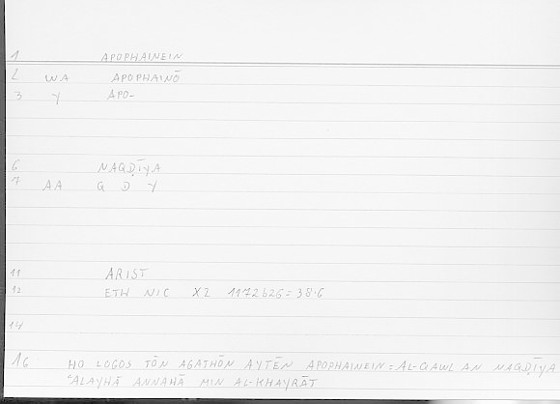 1 APOPHAINEIN
2 WA APOPHAINŌ
3 Y APO-
6 NAQḌĪYA
7 AA Q Ḍ Y
11 ARIST
12 ETH NIC X2 1172b26=38.6
14
16 HO LOGOS TŌN AGATHŌN AYTĒN APOPHAINEIN = AL-QAWL AN NAQḌĪYA
ʿALAYHĀ ANNAHĀ MIN AL-KHAYRĀT